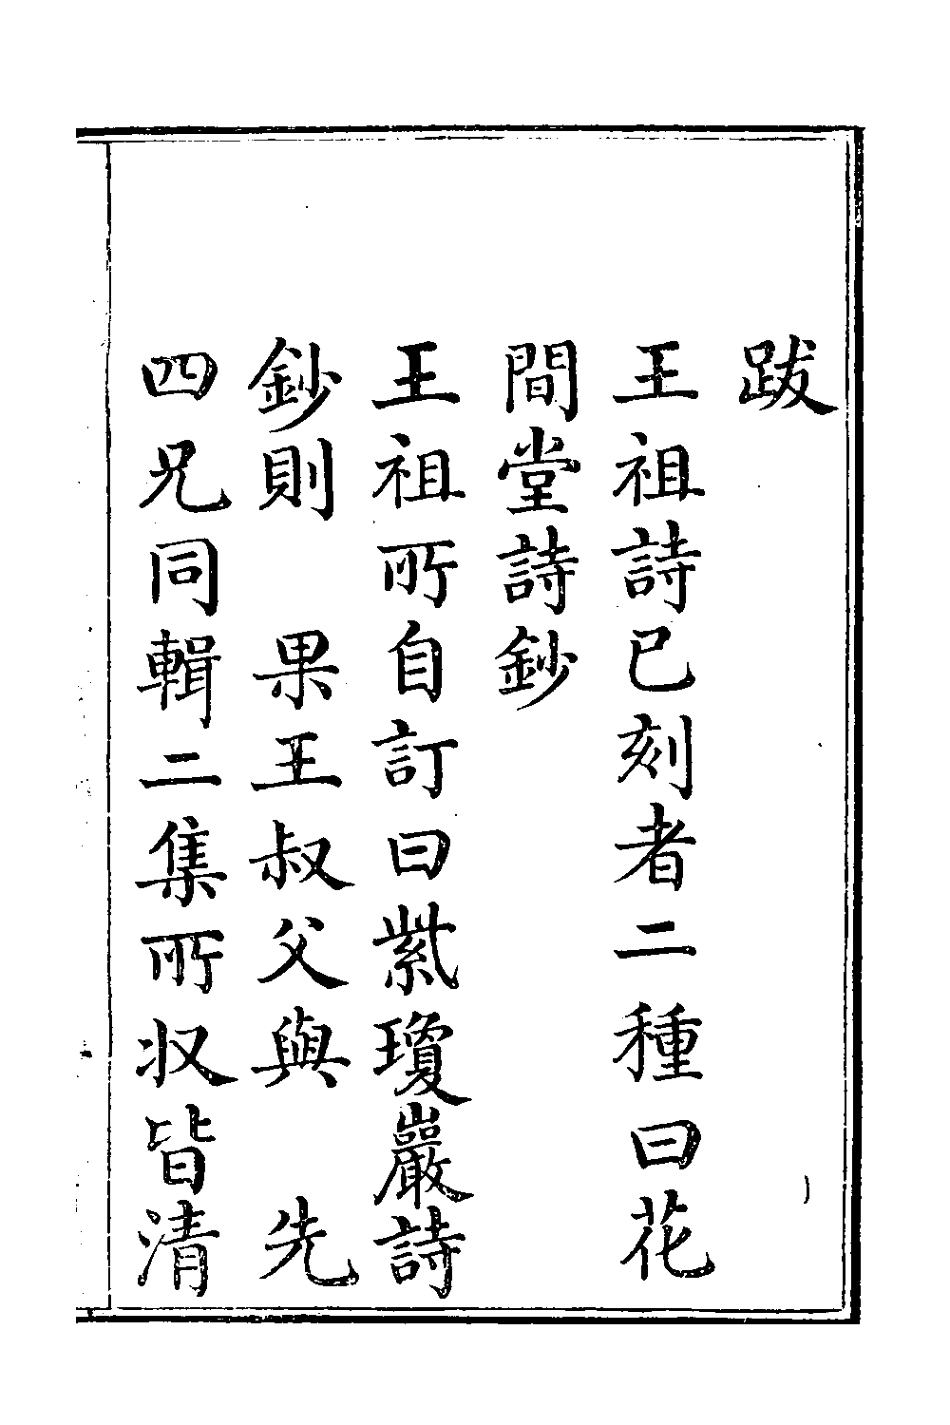 跋
王祖詩已刻者二種曰花
間堂詩鈔
王祖所自訂曰紫瓊巖詩
鈔則　果王叔父與　先
四兄同輯二集所收皆清